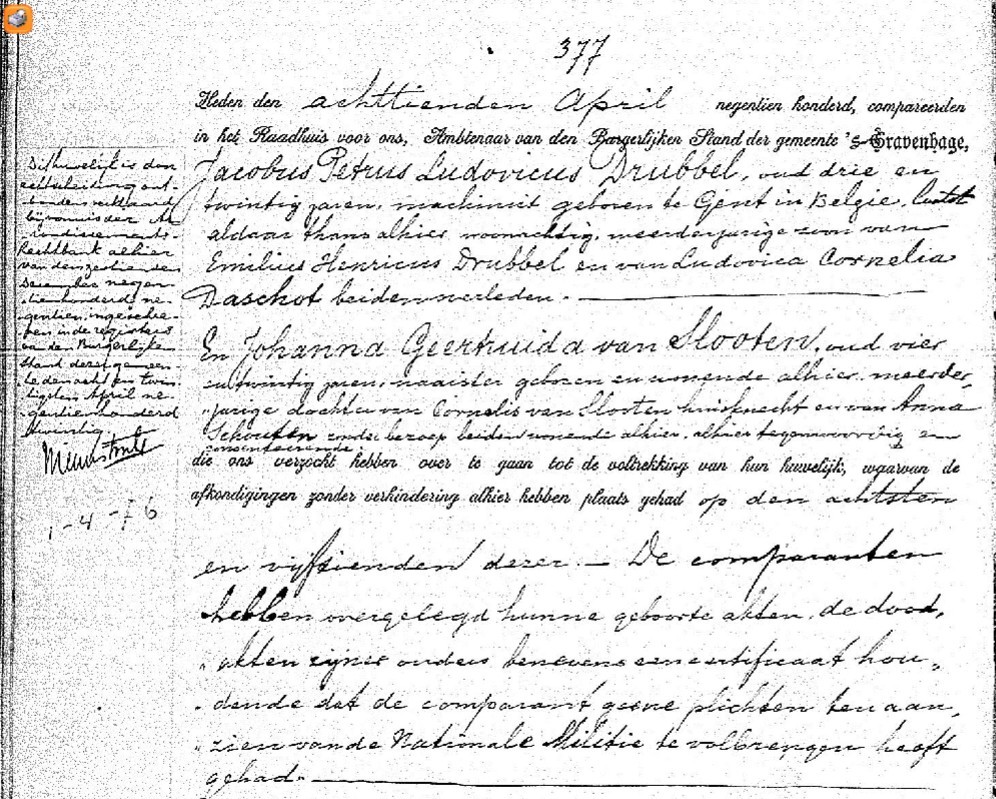 377
Heden den achttienden April negentien honderd, compareerden
in het Raadhuis voor ons, Ambtenaar van den Burgerlijken Stand der gemeente 's-Gravenhage,
Jacobus Petrus Ludovicus Drubbel, oud drie en
twintig jaren, machinist geboren te Gent in Belgie, laatst
aldaar thans alhier woonachtig, meerderjarige zoon van
Emilius Henricus Drubbel en van Ludovica Cornelia
Daschot beiden overleden.
En Johanna Geertruida van Slooten, oud vier
en twintig jaren, naaister geboren en wonende alhier, meerder„
„jarige dochter van Cornelis van Slooten huisknecht en van Anna
Schouten zonder beroep beiden wonende alhier, alhier tegenwoordig en
consenteerende
die ons verzocht hebben over te gaan tot de voltrekking van hun huwelijk, waarvan de
afkondigingen zonder verhindering alhier hebben plaats gehad op den achtsten
en vijftienden dezer. — De comparanten
hebben overgelegd hunne geboorte akten, de dood„
„akten zijner ouders benevens een certificaat hou„
„dende dat de comparant geene plichten ten aan„
„zien van de Nationale Militie te volbrengen heeft
gehad.
Dit huwelijk is door
echtscheiding ont-
bonden verklaard
bij vonnis der Ar-
rondissements-
Rechtbank alhier
van den zestienden
December negen-
tienhonderd ne-
gentien, ingeschre-
ven in de registers
van den Burgerlijke
Stand dezer gemeen-
te den acht en twin-
tigsten April ne-
gentienhonderd
twintig.
1-4-76